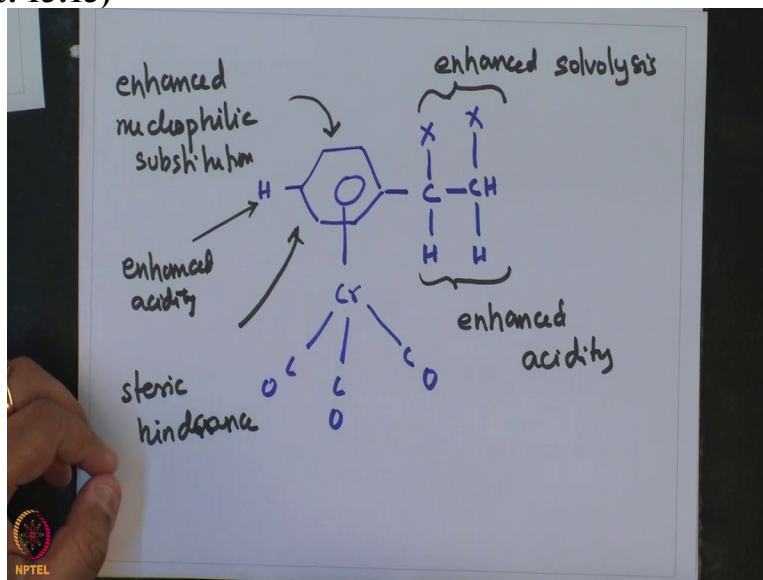 enhanced
nucleophilic
substitution
enhanced solvolysis
X X
H C CH
H H
enhanced
acidity
Cr
enhanced
acidity
C C C
O O O
steric
hindrance
NPTEL